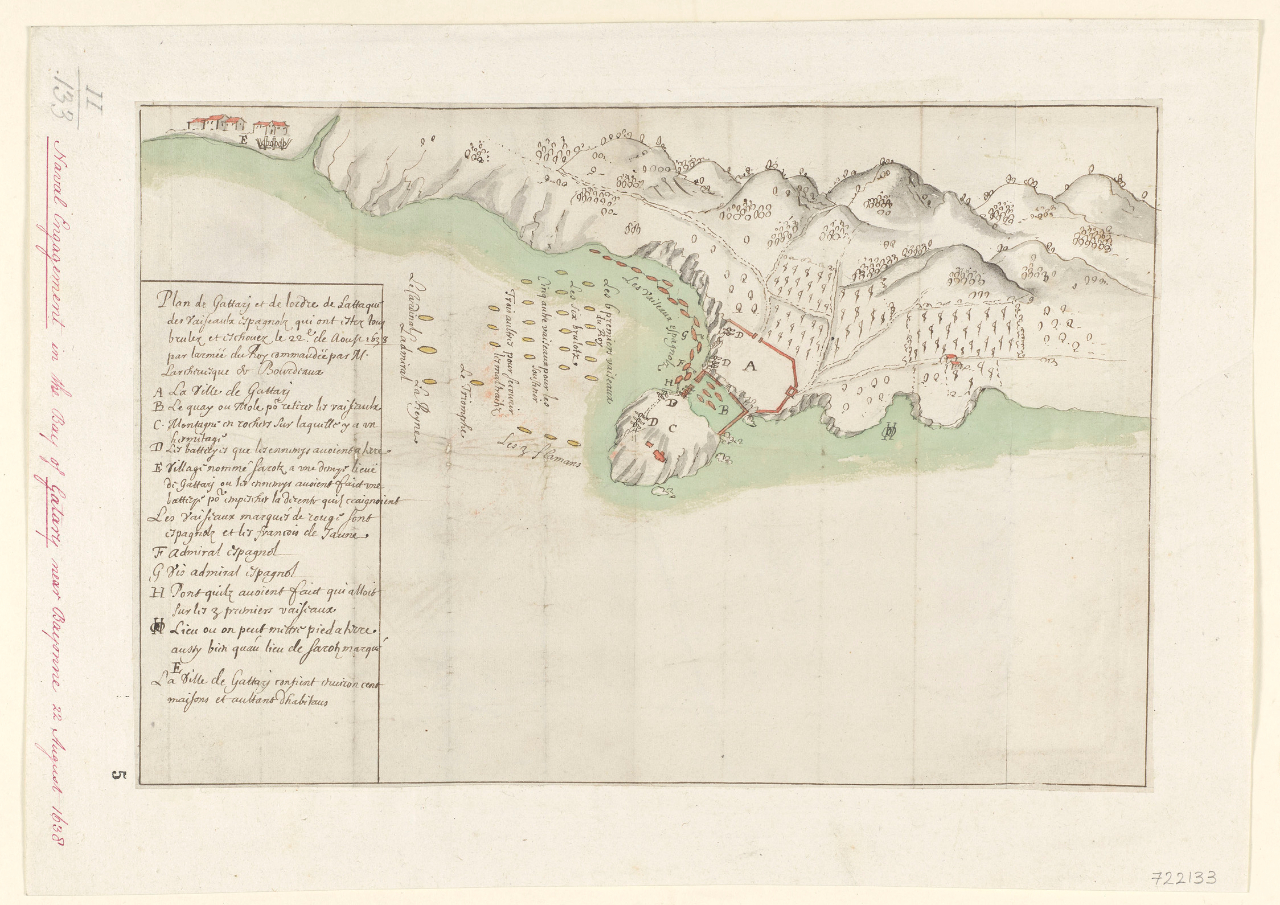 II
133
Naval Engagement in the Bay of Gataris near Bayonne 22 August 1638
5
722133
Plan de Gattarj et de lordre de Lattaque
des Vaiseaulx Espagnolz qui ont estez tous
brulez et eschouez le 22.e de Aoust 1638
par larmée du Roy commandée par Mr.
Larcheuesque de Bourdeaux
A La Ville de Gattarj
B Le quay ou Mole pr retirer les vaiseaulx
C Montagne en rochers sur laquelle y a vn
hermitage
D Les batteryes que les ennemys auoient a terre
E Village nommé Sarotz a vne demye lieue
de Gattarj ou les ennemys auoient faict vne
batterye pr empescher la dicente quilz craignoient
Les Vaiseaux marquéz de rouge sont
espagnolz et les francois de Jaune
F admiral espagnol
G Vis admiral espagnol
H Pont quilz auoient faict qui alloit
sur les 3 premiers vaiseaux
Lieu ou on peut mettre pied a terre
aussy bien quau lieu de Sarotz marqué
E
La Ville de Gattarj contient enuiron cent
maisons et aultant dhabitans
E
Le Cardinal
Ladmiral
La Reyne
Le Triomphe
Trois aultres pour secourir
les maltraitez
Cinq aultre vaiseaux pour les
soustenir
Les Six brulotz
Les 6 premiers vaiseaux
du Roy
Les Vaiseaux espagnolz
Les 3 flamans
G
F
H
D
D
A
B
D
D
C